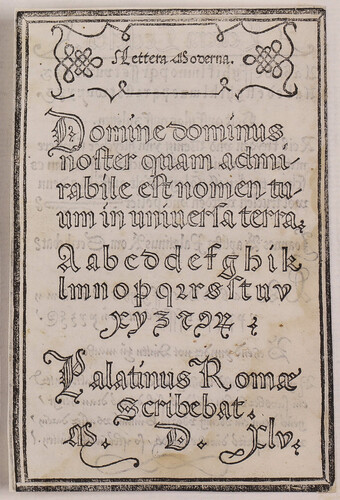 Lettera Moderna.
Domine dominus
noſter quam admi-
rabile eſt nomen tu-
um in univerſa terra
A a b c d d e f g h i k
l m n o p q r ꝛ s ſ t u v
x y z
Palatinus Romæ
Scribebat.
M. D. XLV.